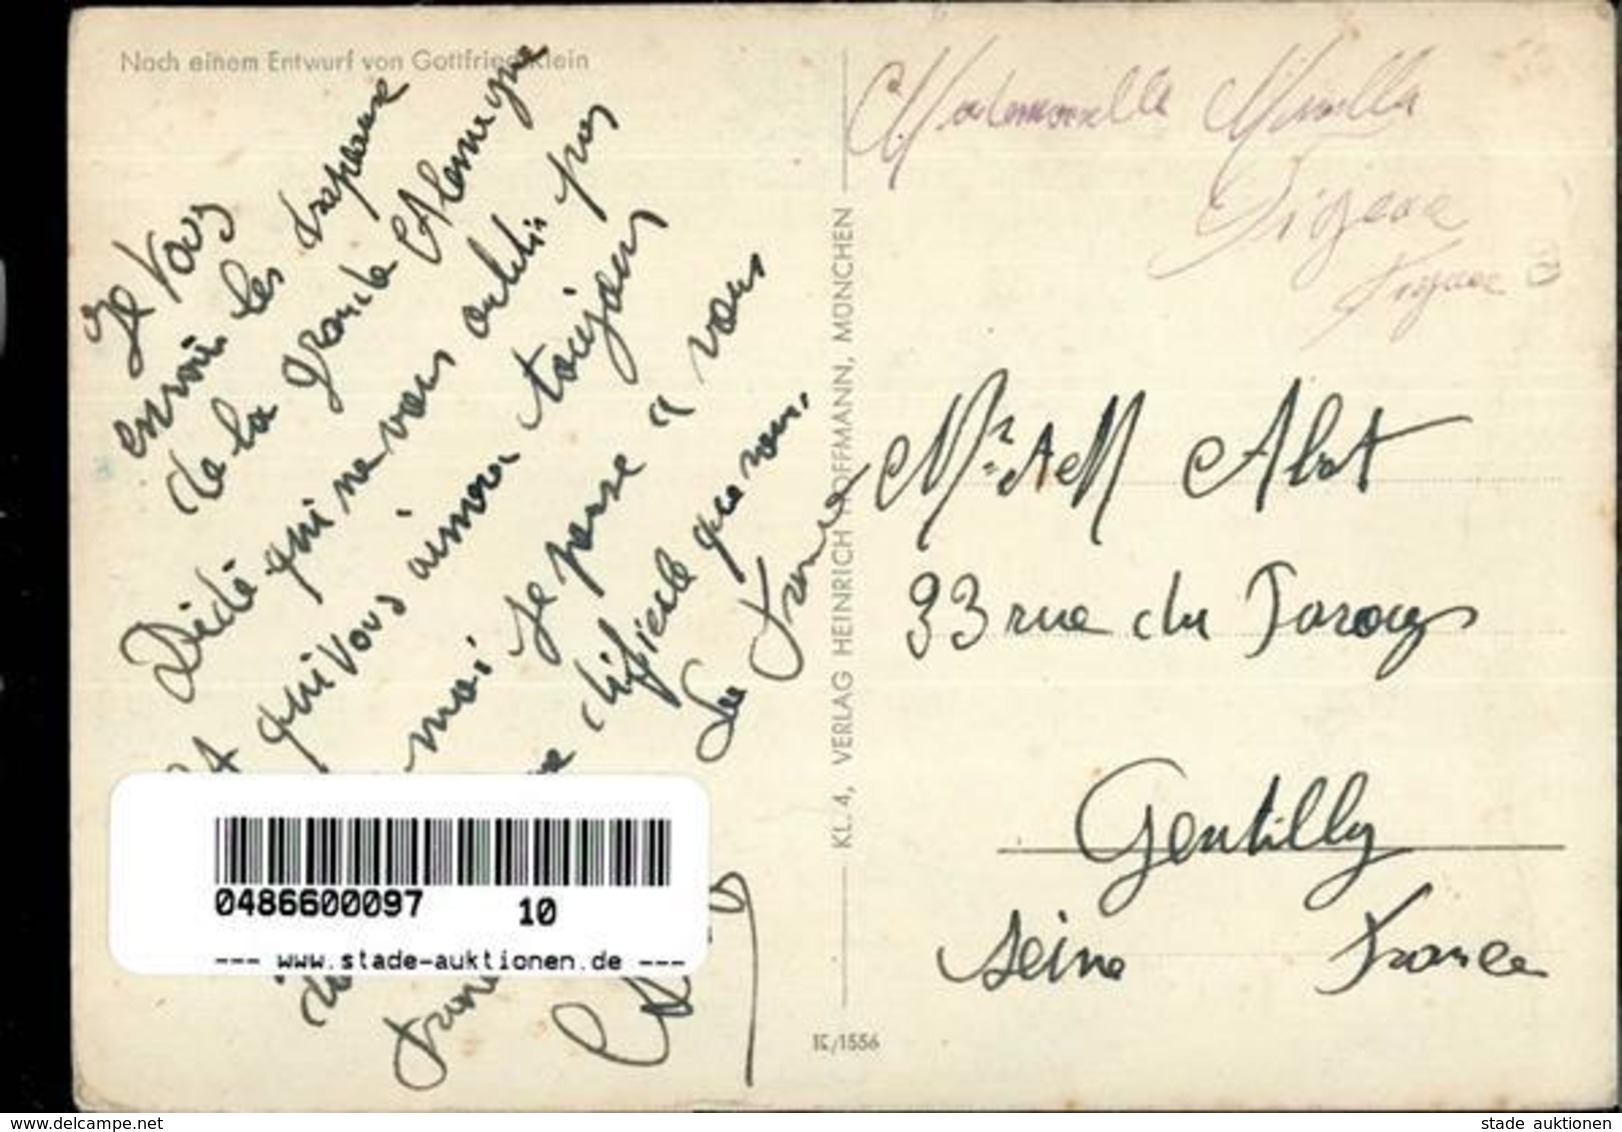 Nach einem Entwurf von Gottfried Klein
Je Vous
envoie les drapeaux
de la grande Alemagne
Dédé qui ne vous oublie pas
et qui Vous aimera toujours
moi je pense a vous
dificile que vous.
France
KL. 4, VERLAG HEINRICH HOFFMANN, MÜNCHEN
K/1556
Mademoiselle
Mr et M
33 rue du
Gentilly
Seine France
0486600097 10
--- www.stade-auktionen.de ---
www.delcampe.net
stade auktionen